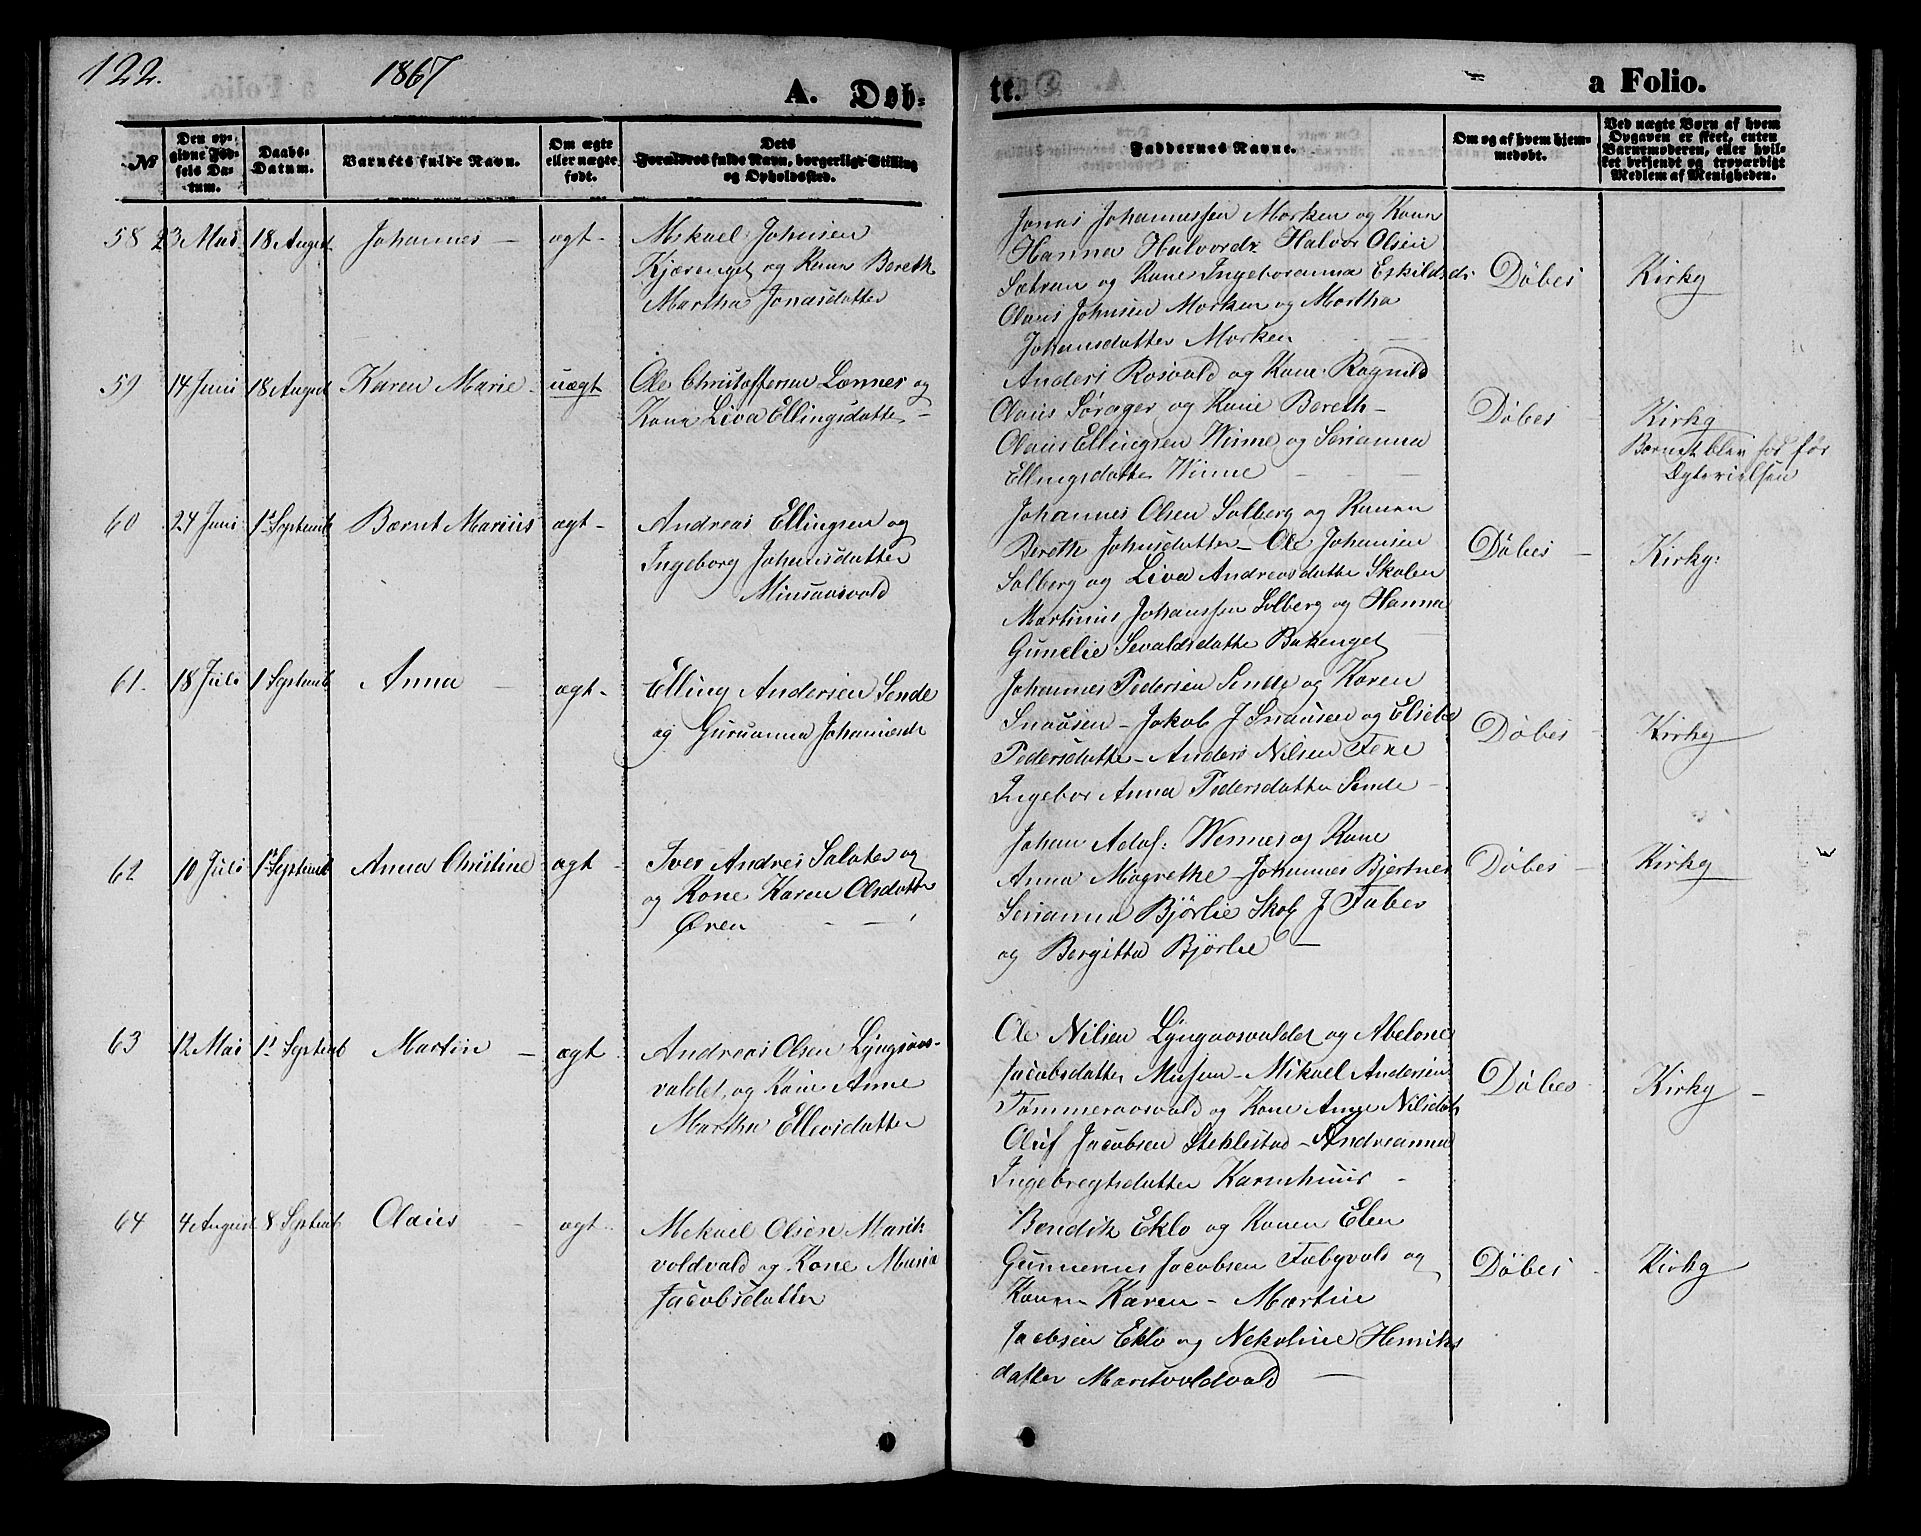 122.
1867
A. Døb-
te.
a Folio.
№
Den op-
givne Fød-
sels Da-
tum.
Daabs-
Datum.
Barnets fulde Navn.
Om ægte
eller uægte
født.
Dets
Forældres fulde Navn, borgerlige Stilling
og Opholdssted.
Faddernes Navne.
Om og af hvem hjem-
medøbt.
Ved uægte Børn af hvem
Opgaven er skeet, enten
Barnemoderen, eller hvil-
ket bekjendt og troværdigt
Medlem af Menigheden.
58 23 Mai 18 August Johannes - ægt -
Mekael Johnsen
Kjærenget og Kone Bereth
Martha Jonasdatter
Jonas Johannessen Morken og Kone
Hanna Halvordr Halvor Olsen
Sætran og Kone Ingeboranna Eskildsdr
Olaus Johnsen Morken og Martha
Johansdatter Morken
Døbes
Kirky
59 14 Juni 18 August Karen Marie - uægt
Ole Christoffersen Lønnes og
Kone Liva Ellingsdatter -
Anders Rosvold og Kone Ragnild
Olaus Sørager og Kone Bereth -
Olaus Ellingsen Winne og Serianna
Ellingsdatter Winne -
Døbes -
Kirky
Barnet blev fød før
Ægtevielsen
60 24 Juni 1st Septemb Bærnt Marius ægt -
Andreas Ellingsen og
Ingeborg Johansdatter
Minsaasvald
Johannes Olsen Solberg og Konen
Berethe Johnsdatter - Ole Johansen
Solberg og Liva Andreasdatter Skolen
Martinus Johanssen Solberg og Hanna
Gunelie Sevaldsdatter Bakenget
Døbes -
Kirky:
61. 18 Juli 1 Septemb Anna - ægt -
Elling Andersen Sende
og Guruanna Johansdr
Johannes Pedersen Sende og Karen
Snausen - Jakob J Snausen og Elsebe
Pedersdatter - Anders Nilsen Fene
Ingebor Anna Pedersdatter Sende -
Døbes -
Kirky
62 10 Juli 1st Septemb Anna Christine ægt -
Iver Andres Salater og
og Kone Karen Olsdatter
Øren
Johan Adof: Wennes og Kone
Anna Magrethe - Johannes Bjertnes
Serianna Bjørlie Skol J Faber
og Bergitta Bjørlie -
Døbes -
Kirky
63 12 Mai 1st Septemb Martin - ægt
Andreas Olsen Lyngaas-
valdet, og Kone Anne
Martha Ellevsdatter
Ole Nilsen Lyngaasvaldet og Abelone
Jacobsdatter Musem - Mikael Andersen
Tømmeraasvald og Kone Anne Nilsdat
Oluf Jacobsen Steklestad - Andreanna
Ingebregtsdatter Karmhuus -
Døbes
Kirky -
64 4 August 8 Septemb Olaus - ægt
Mekael Olsen Marit-
voldvald og Kone Maria
Jacobsdatter
Bendik Eklo og Konen Elen
Gunnerius Jacobsen Fæbyvald og
Konen Karen - Martin
Jacobsen Eklo og Nekoline Henriks
datter Maritvoldvald -
Døbes -
Kirky